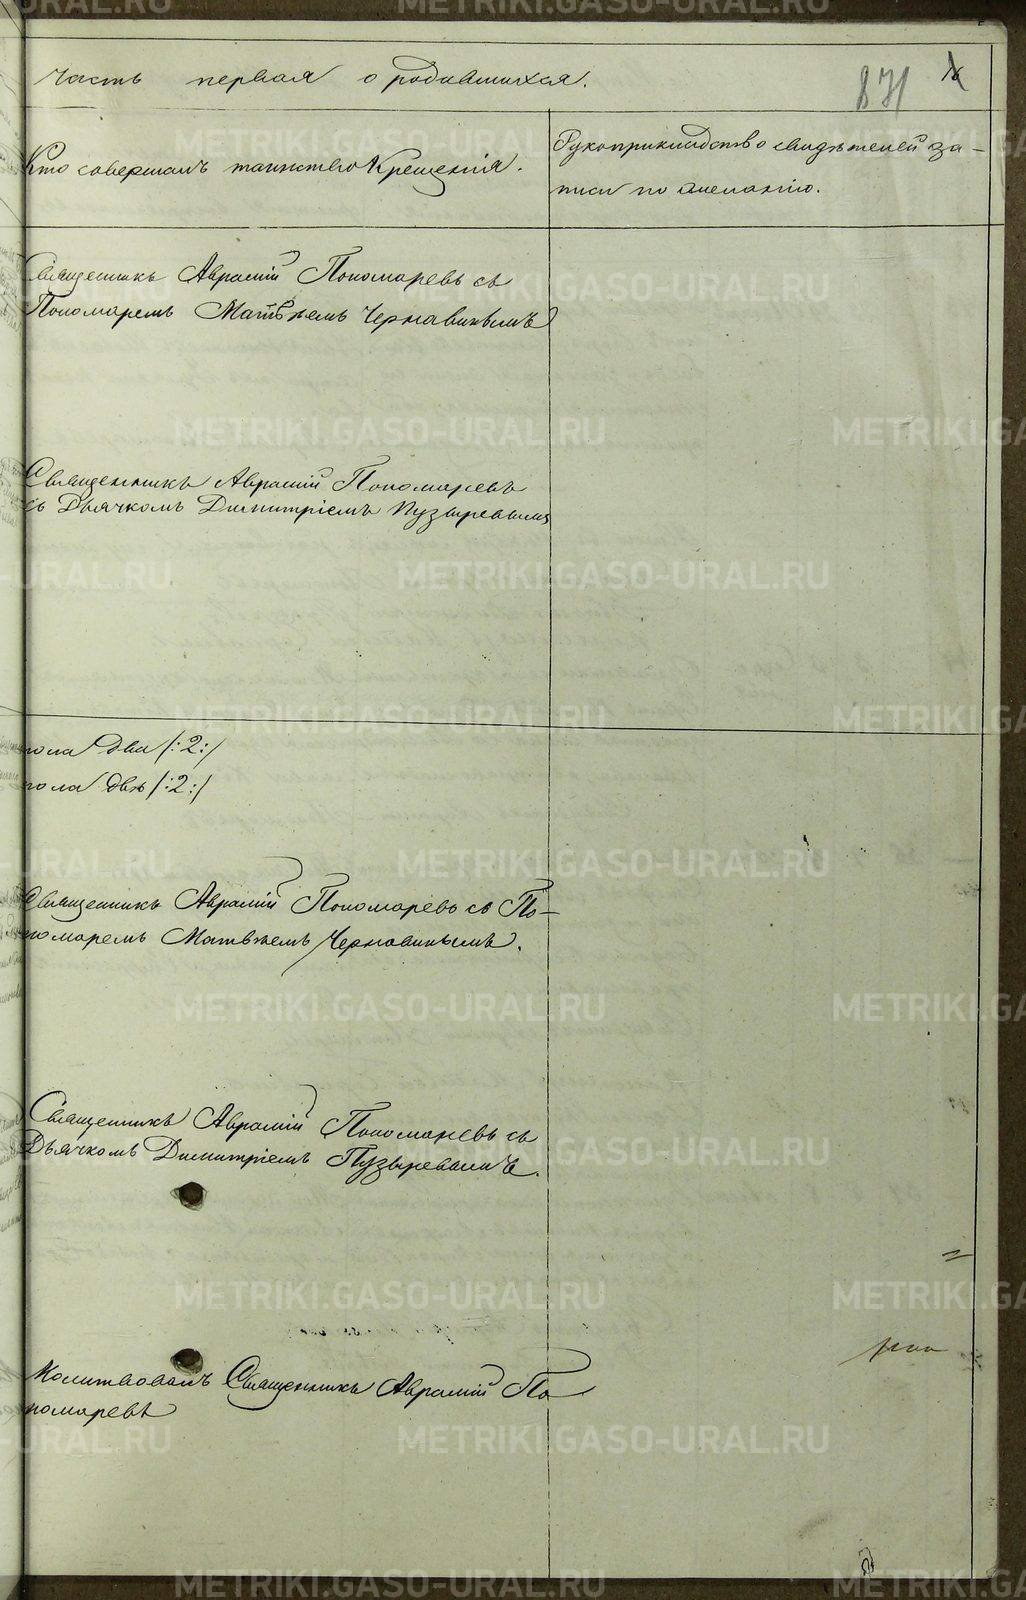 Часть первая о родившихся.
831
Кто совершалъ таинство Крещенія.
Рукоприкладство свидѣтелей за-
писи по желанію.
Священникъ Аврамій Пономаревъ съ
Пономаремъ Матвѣемъ Чернавинымъ
Священникъ Аврамій Пономаревъ
съ Дьячкомъ Димитріемъ Пузыревымъ
пола два /:2:/
пола двѣ /:2:/
Священникъ Аврамій Пономаревъ съ По-
номаремъ Матвѣемъ Чернавинымъ.
Священникъ Аврамій Пономаревъ съ
Дьячкомъ Димитріемъ Пузыревымъ.
Молитвовалъ Священникъ Аврамій По
номаревъ
METRIKI.GASO-URAL.RU